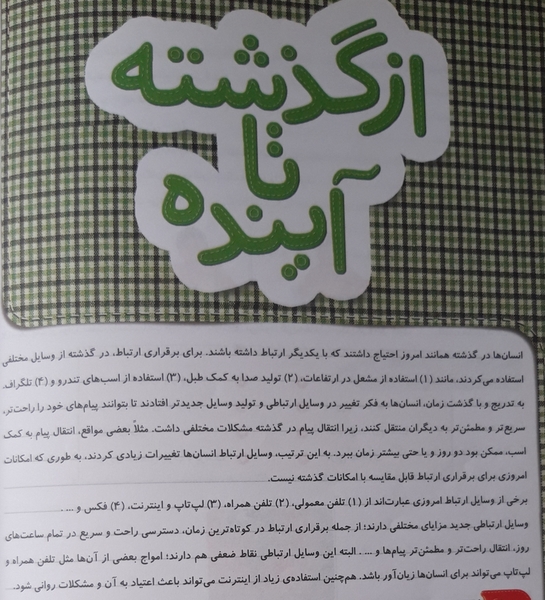 از گذشته
تا
آینده
انسان‌ها در گذشته همانند امروز احتیاج داشتند که با یکدیگر ارتباط داشته باشند. برای برقراری ارتباط، در گذشته از وسایل مختلفی
استفاده می‌کردند، مانند (۱) استفاده از مشعل در ارتفاعات، (۲) تولید صدا به کمک طبل، (۳) استفاده از اسب‌های تندرو و (۴) تلگراف.
به تدریج و با گذشت زمان، انسان‌ها به فکر تغییر در وسایل ارتباطی و تولید وسایل جدیدتر افتادند تا بتوانند پیام‌های خود را راحت‌تر،
سریع‌تر و مطمئن‌تر به دیگران منتقل کنند، زیرا انتقال پیام در گذشته مشکلات مختلفی داشت. مثلاً بعضی مواقع، انتقال پیام به کمک
اسب، ممکن بود دو روز و یا حتی بیشتر زمان ببرد. به این ترتیب، وسایل ارتباط انسان‌ها تغییرات زیادی کردند، به طوری که امکانات
امروزی برای برقراری ارتباط قابل مقایسه با امکانات گذشته نیست.
برخی از وسایل ارتباط امروزی عبارت‌اند از (۱) تلفن معمولی، (۲) تلفن همراه، (۳) لپ‌تاپ و اینترنت، (۴) فکس و ... .
وسایل ارتباطی جدید مزایای مختلفی دارند؛ از جمله برقراری ارتباط در کوتاه‌ترین زمان، دسترسی راحت و سریع در تمام ساعت‌های
روز، انتقال راحت‌تر و مطمئن‌تر پیام‌ها و ... . البته این وسایل ارتباطی نقاط ضعفی هم دارند؛ امواج بعضی از آن‌ها مثل تلفن همراه و
لپ‌تاپ می‌تواند برای انسان‌ها زیان‌آور باشد. هم‌چنین استفاده‌ی زیاد از اینترنت می‌تواند باعث اعتیاد به آن و مشکلات روانی شود.